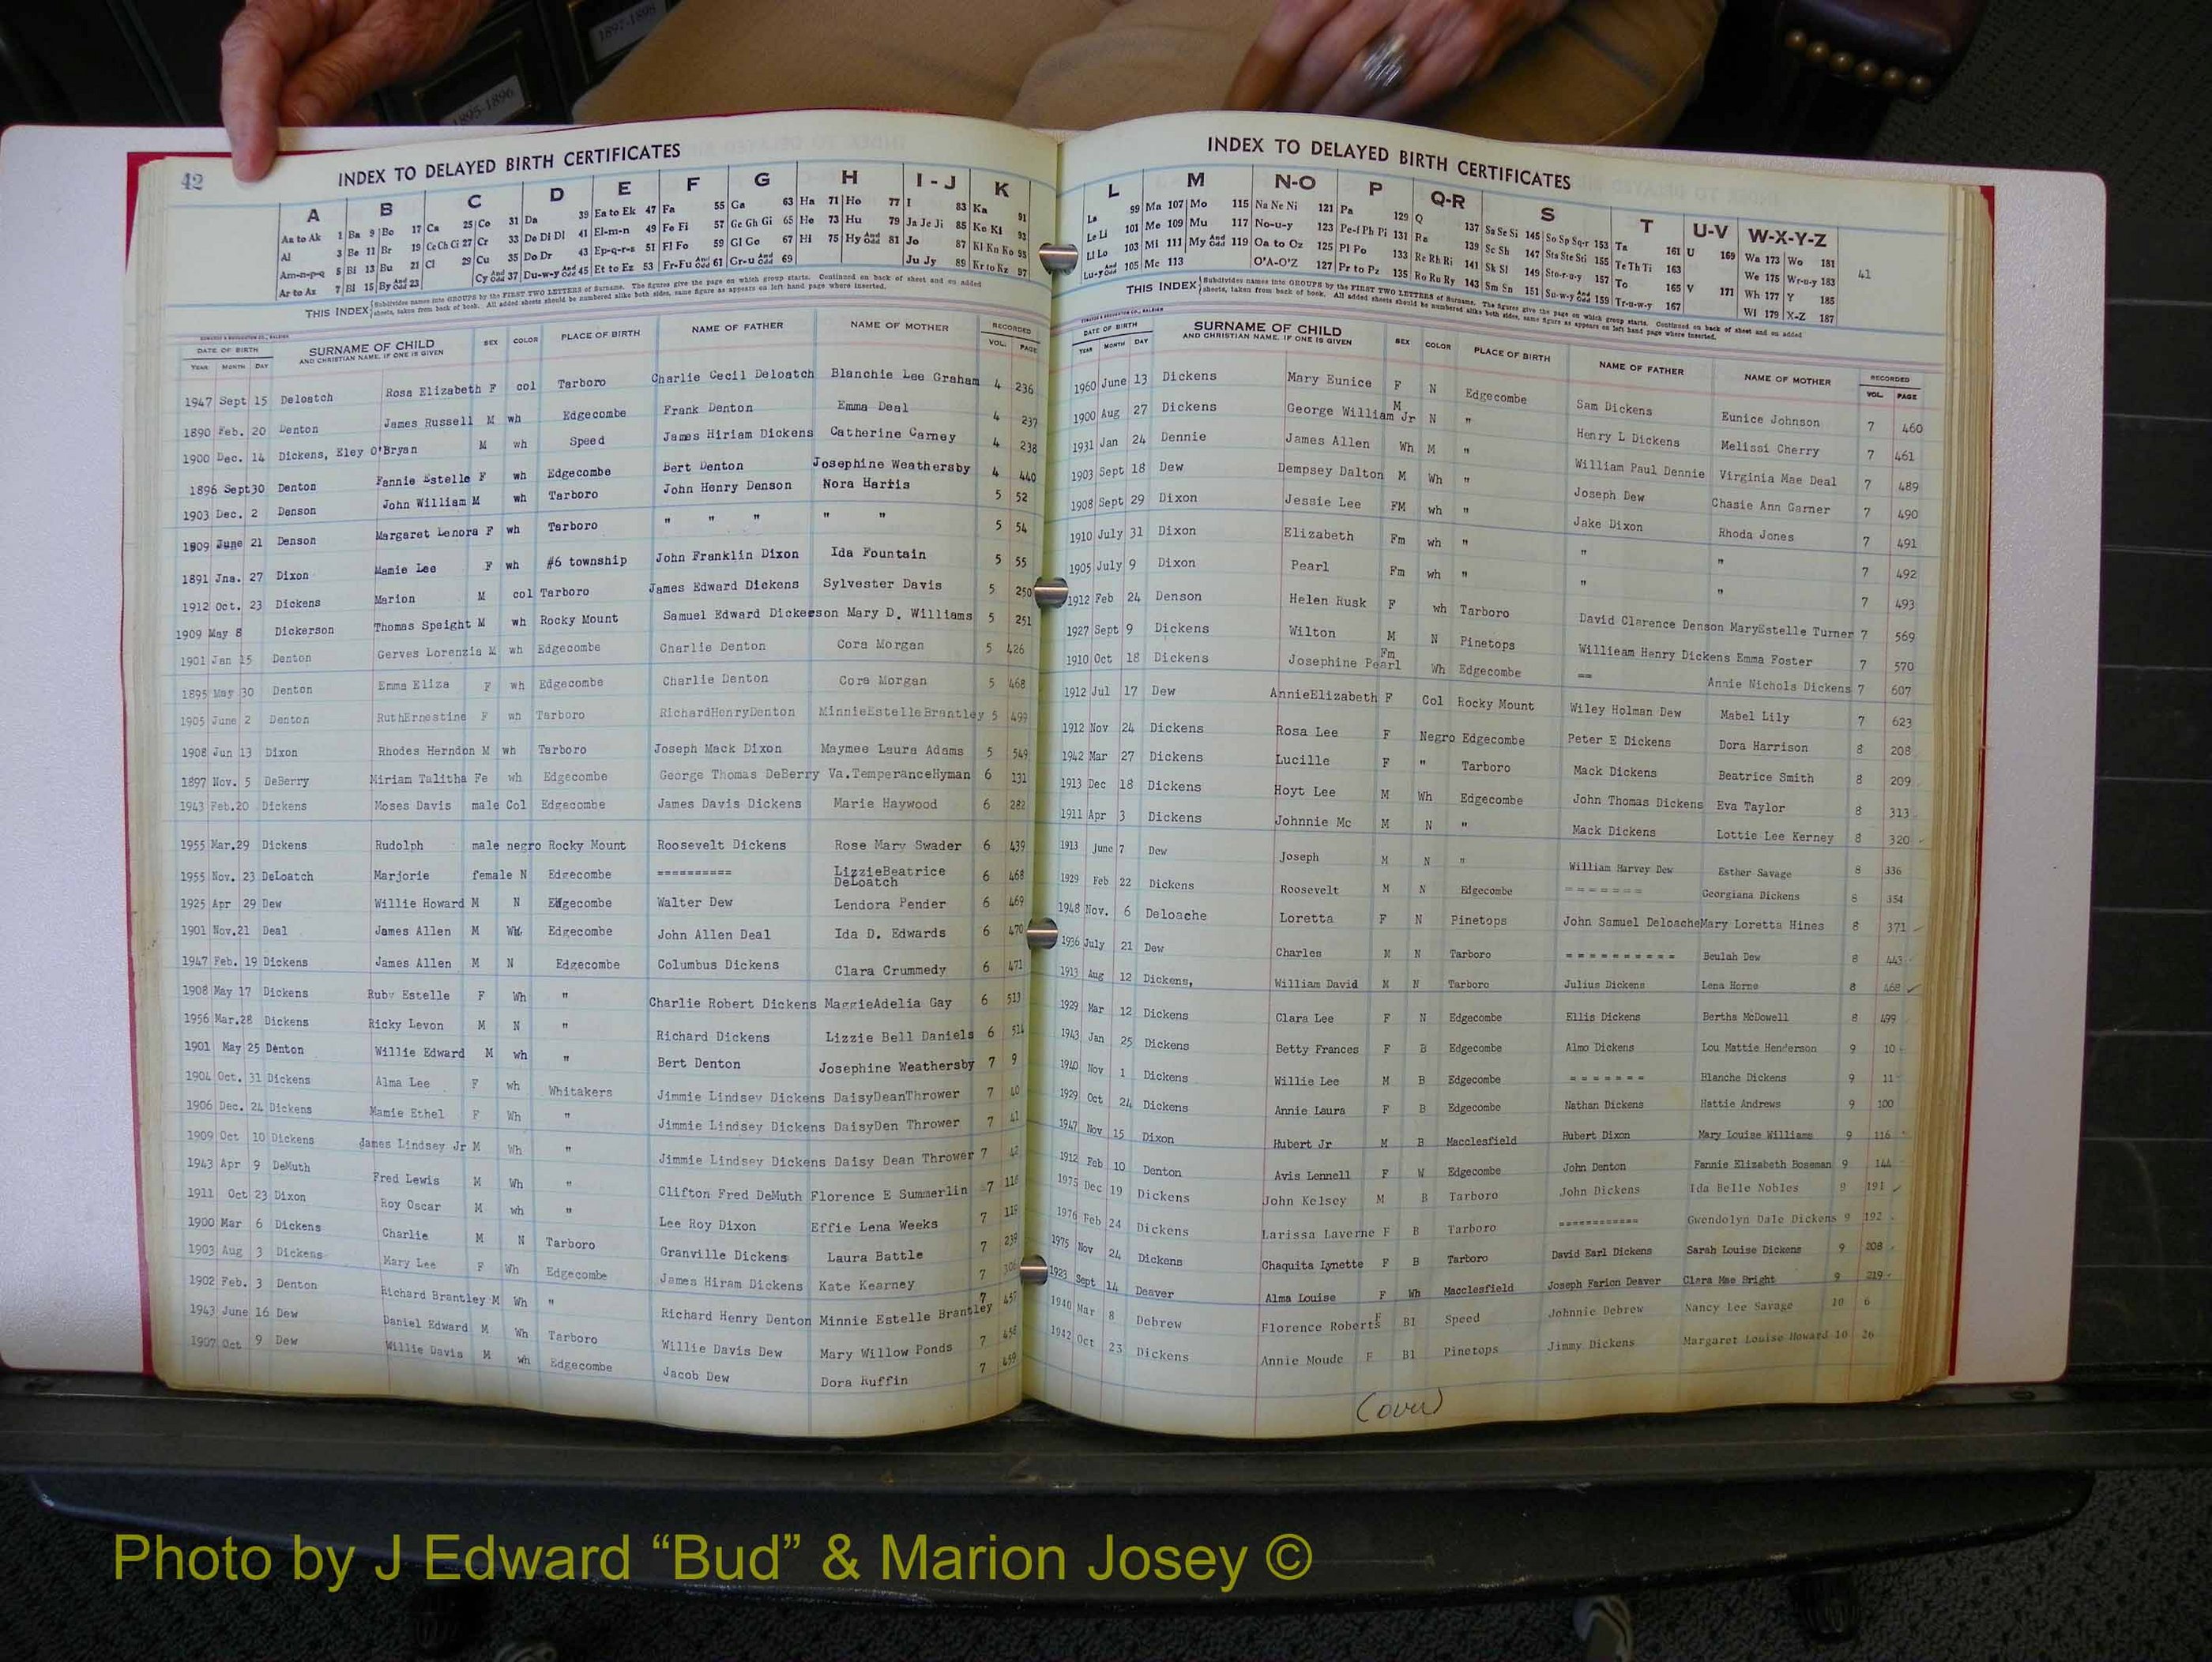 1897-1898
1895-1896
42
INDEX TO DELAYED BIRTH CERTIFICATES
A B C D E F G H I - J K
Aa to Ak 1 Ba 9 Bo 17 Ca 25 Co 31 Da 39 Ea to Ek 47 Fa 55 Ga 63 Ha 71 Ho 77 I 83 Ka 91
Al 3 Be 11 Br 19 Ce Ch Ci 27 Cr 33 De Di Dl 41 El-m-n 49 Fe Fi 57 Ge Gh Gi 65 He 73 Hu 79 Ja Je Ji 85 Ke Ki 93
Am-n-p-q 5 Bi 13 Bu 21 Cl 29 Cu 35 Do Dr 43 Ep-q-r-s 51 Fl Fo 59 Gl Go 67 Hi 75 Hy And Odd 81 Jo 87 Kl Kn Ko 95
Ar to Az 7 Bl 15 By And Odd 23 Cy And Odd 37 Du-w-y And Odd 45 Et to Ez 53 Fr-Fu And Odd 61 Gr-u And Odd 69 Ju Jy 89 Kr to Kz 97
THIS INDEX Subdivides names into GROUPS by the FIRST TWO LETTERS of Surname. The figures give the page on which group starts. Continued on back of sheet and on added
sheets, taken from back of book. All added sheets should be numbered alike both sides, same figure as appears on left hand page where inserted.
EDWARDS & BROUGHTON CO., RALEIGH
DATE OF BIRTH SURNAME OF CHILD SEX COLOR PLACE OF BIRTH NAME OF FATHER NAME OF MOTHER RECORDED
YEAR MONTH DAY AND CHRISTIAN NAME, IF ONE IS GIVEN VOL. PAGE
1947 Sept 15 Deloatch Rosa Elizabeth F col Tarboro Charlie Cecil Deloatch Blanchie Lee Graham 4 236
1890 Feb. 20 Denton James Russell M wh Edgecombe Frank Denton Emma Deal 4 237
1900 Dec. 14 Dickens, Eley O'Bryan M wh Speed James Hiriam Dickens Catherine Carney 4 238
1896 Sept30 Denton Fannie Estelle F wh Edgecombe Bert Denton Josephine Weathersby 4 440
1903 Dec. 2 Denson John William M wh Tarboro John Henry Denson Nora Harris 5 52
1909 June 21 Denson Margaret Lenora F wh Tarboro " " " " " 5 54
1891 Jna. 27 Dixon Mamie Lee F wh #6 township John Franklin Dixon Ida Fountain 5 55
1912 Oct. 23 Dickens Marion M col Tarboro James Edward Dickens Sylvester Davis 5 250
1909 May 8 Dickerson Thomas Speight M wh Rocky Mount Samuel Edward Dickerson Mary D. Williams 5 251
1901 Jan 15 Denton Gerves Lorenzia M wh Edgecombe Charlie Denton Cora Morgan 5 426
1895 May 30 Denton Emma Eliza F wh Edgecombe Charlie Denton Cora Morgan 5 468
1905 June 2 Denton RuthErnestine F wh Tarboro RichardHenryDenton MinnieEstelleBrantley 5 499
1908 Jun 13 Dixon Rhodes Herndon M wh Tarboro Joseph Mack Dixon Maymee Laura Adams 5 549
1897 Nov. 5 DeBerry Miriam Talitha Fe wh Edgecombe George Thomas DeBerry Va.TemperanceHyman 6 131
1943 Feb.20 Dickens Moses Davis male Col Edgecombe James Davis Dickens Marie Haywood 6 282
1955 Mar.29 Dickens Rudolph male negro Rocky Mount Roosevelt Dickens Rose Mary Swader 6 439
1955 Nov. 23 DeLoatch Marjorie female N Edgecombe ========== LizzieBeatrice DeLoatch 6 468
1925 Apr 29 Dew Willie Howard M N Edgecombe Walter Dew Lendora Pender 6 469
1901 Nov.21 Deal James Allen M Wh Edgecombe John Allen Deal Ida D. Edwards 6 470
1947 Feb. 19 Dickens James Allen M N Edgecombe Columbus Dickens Clara Crummedy 6 471
1908 May 17 Dickens Ruby Estelle F Wh " Charlie Robert Dickens MaggieAdelia Gay 6 513
1956 Mar.28 Dickens Ricky Levon M N " Richard Dickens Lizzie Bell Daniels 6 514
1901 May 25 Denton Willie Edward M wh " Bert Denton Josephine Weathersby 7 9
1904 Oct. 31 Dickens Alma Lee F wh Whitakers Jimmie Lindsey Dickens DaisyDeanThrower 7 40
1906 Dec. 24 Dickens Mamie Ethel F Wh " Jimmie Lindsey Dickens DaisyDen Thrower 7 41
1909 Oct 10 Dickens James Lindsey Jr M Wh " Jimmie Lindsey Dickens Daisy Dean Thrower 7 42
1943 Apr 9 DeMuth Fred Lewis M Wh " Clifton Fred DeMuth Florence E Summerlin 7 118
1911 Oct 23 Dixon Roy Oscar M wh " Lee Roy Dixon Effie Lena Weeks 7 119
1900 Mar 6 Dickens Charlie M N Tarboro Granville Dickens Laura Battle 7 239
1903 Aug 3 Dickens Mary Lee F Wh Edgecombe James Hiram Dickens Kate Kearney 7 306
1902 Feb. 3 Denton Richard Brantley M Wh " Richard Henry Denton Minnie Estelle Brantley 7 457
1943 June 16 Dew Daniel Edward M Wh Tarboro Willie Davis Dew Mary Willow Ponds 7 458
1907 Oct 9 Dew Willie Davis M wh Edgecombe Jacob Dew Dora Ruffin 7 459
INDEX TO DELAYED BIRTH CERTIFICATES
L M N-O P Q-R S T U-V W-X-Y-Z
La 99 Ma 107 Mo 115 Na Ne Ni 121 Pa 129 Q 137 Sa Se Si 145 So Sp Sq-r 153 Ta 161 U 169 Wa 173 Wo 181
Le Li 101 Me 109 Mu 117 No-u-y 123 Pe-f Ph Pi 131 Ra 139 Sc Sh 147 Sta Ste Sti 155 Te Th Ti 163 We 175 Wr-u-y 183
Ll Lo 103 Mi 111 My And Odd 119 Oa to Oz 125 Pl Po 133 Re Rh Ri 141 Sk Sl 149 Sto-r-u-y 157 To 165 V 171 Wh 177 Y 185
Lu-y And Odd 105 Mc 113 O'A-O'Z 127 Pr to Pz 135 Ro Ru Ry 143 Sm Sn 151 Su-w-y And Odd 159 Tr-u-w-y 167 Wi 179 X-Z 187
41
THIS INDEX Subdivides names into GROUPS by the FIRST TWO LETTERS of Surname. The figures give the page on which group starts. Continued on back of sheet and on added
sheets, taken from back of book. All added sheets should be numbered alike both sides, same figure as appears on left hand page where inserted.
EDWARDS & BROUGHTON CO., RALEIGH
DATE OF BIRTH SURNAME OF CHILD SEX COLOR PLACE OF BIRTH NAME OF FATHER NAME OF MOTHER RECORDED
YEAR MONTH DAY AND CHRISTIAN NAME, IF ONE IS GIVEN VOL. PAGE
1960 June 13 Dickens Mary Eunice F N Edgecombe Sam Dickens Eunice Johnson 7 460
1900 Aug 27 Dickens George William Jr M N " Henry L Dickens Melissi Cherry 7 461
1931 Jan 24 Dennie James Allen Wh M " William Paul Dennie Virginia Mae Deal 7 489
1903 Sept 18 Dew Dempsey Dalton M Wh " Joseph Dew Chasie Ann Garner 7 490
1908 Sept 29 Dixon Jessie Lee FM wh " Jake Dixon Rhoda Jones 7 491
1910 July 31 Dixon Elizabeth Fm wh " " " 7 492
1905 July 9 Dixon Pearl Fm wh " " " 7 493
1912 Feb 24 Denson Helen Rusk F wh Tarboro David Clarence Denson MaryEstelle Turner 7 569
1927 Sept 9 Dickens Wilton M N Pinetops Willieam Henry Dickens Emma Foster 7 570
1910 Oct 18 Dickens Josephine Pearl Fm Wh Edgecombe == Annie Nichols Dickens 7 607
1912 Jul 17 Dew AnnieElizabeth F Col Rocky Mount Wiley Holman Dew Mabel Lily 7 623
1912 Nov 24 Dickens Rosa Lee F Negro Edgecombe Peter E Dickens Dora Harrison 8 208
1942 Mar 27 Dickens Lucille F " Tarboro Mack Dickens Beatrice Smith 8 209
1913 Dec 18 Dickens Hoyt Lee M Wh Edgecombe John Thomas Dickens Eva Taylor 8 313
1911 Apr 3 Dickens Johnnie Mc M N " Mack Dickens Lottie Lee Kerney 8 320
1913 June 7 Dew Joseph M N " William Harvey Dew Esther Savage 8 336
1929 Feb 22 Dickens Roosevelt M N Edgecombe ======= Georgiana Dickens 8 354
1948 Nov. 6 Deloache Loretta F N Pinetops John Samuel DeloacheMary Loretta Hines 8 371
1936 July 21 Dew Charles M N Tarboro ========== Beulah Dew 8 443
1913 Aug 12 Dickens, William David M N Tarboro Julius Dickens Lena Horne 8 468
1929 Mar 12 Dickens Clara Lee F N Edgecombe Ellis Dickens Bertha McDowell 8 499
1943 Jan 25 Dickens Betty Frances F B Edgecombe Almo Dickens Lou Mattie Henderson 9 10
1940 Nov 1 Dickens Willie Lee M B Edgecombe ======= Blanche Dickens 9 11
1929 Oct 24 Dickens Annie Laura F B Edgecombe Nathan Dickens Hattie Andrews 9 100
1947 Nov 15 Dixon Hubert Jr M B Macclesfield Hubert Dixon Mary Louise Williams 9 116
1912 Feb 10 Denton Avis Lennell F W Edgecombe John Denton Fannie Elizabeth Boseman 9 144
1975 Dec 19 Dickens John Kelsey M B Tarboro John Dickens Ida Belle Nobles 9 191
1976 Feb 24 Dickens Larissa Laverne F B Tarboro ============ Gwendolyn Dale Dickens 9 192
1975 Nov 24 Dickens Chaquita Lynette F B Tarboro David Earl Dickens Sarah Louise Dickens 9 208
1923 Sept 14 Deaver Alma Louise F Wh Macclesfield Joseph Farion Deaver Clara Mae Bright 9 219
1940 Mar 8 Debrew Florence Roberts F Bl Speed Johnnie Debrew Nancy Lee Savage 10 6
1942 Oct 23 Dickens Annie Moude F Bl Pinetops Jimmy Dickens Margaret Louise Howard 10 26
(over)
Photo by J Edward “Bud” & Marion Josey ©